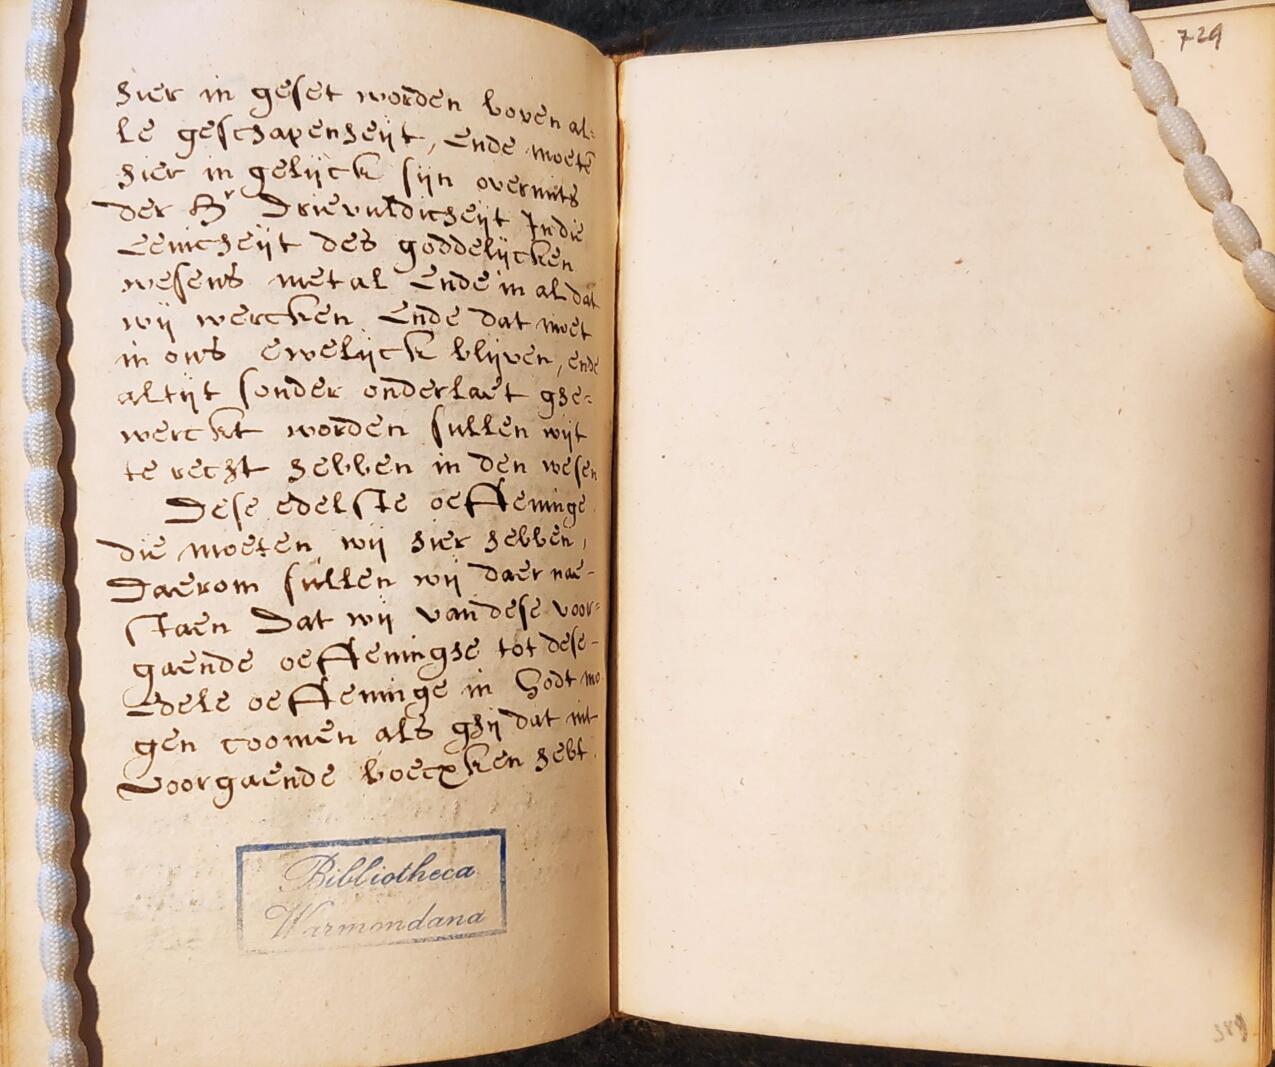 hier in geset worden boven al=
le geschapenheijt, Ende moetē
hier in gelijck sijn overmits
der Hr Drievuldicheijt In die
Eenicheijt des goddelijcken
wesens met al Ende in al dat
wij wercken Ende dat moet
in ons ewelijck blijven, ende
altijt sonder onderlaet ghe=
werckt worden sullen wijt
te recht hebben in den wesen
Dese edelste oeffeninge
die moeten wij hier hebben,
Daerom sullen wij daer nae-
staen Dat wij van dese voor=
gaende oeffeninghe tot dese-
Edele oeffeninge in Godt mo
gen coomen als ghij dat int
voorgaende boecxken hebt.
Bibliotheca
Warmondana
729